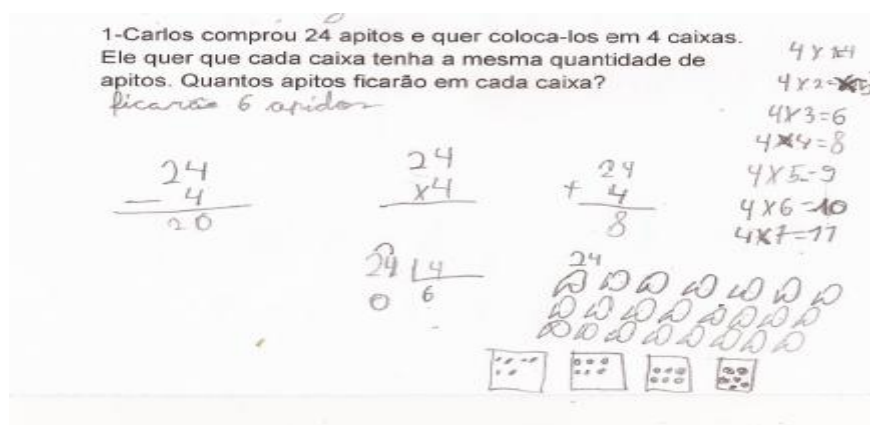 1-Carlos comprou 24 apitos e quer coloca-los em 4 caixas.
Ele quer que cada caixa tenha a mesma quantidade de
apitos. Quantos apitos ficarão em cada caixa?
ficarão 6 apidos
4 x 1=4
4 x 2=
4x3=6
4x4=8
4x5=9
4x6=10
4x7=11
24
- 4
20
24
x4
24
+ 4
8
24 4
0 6
24